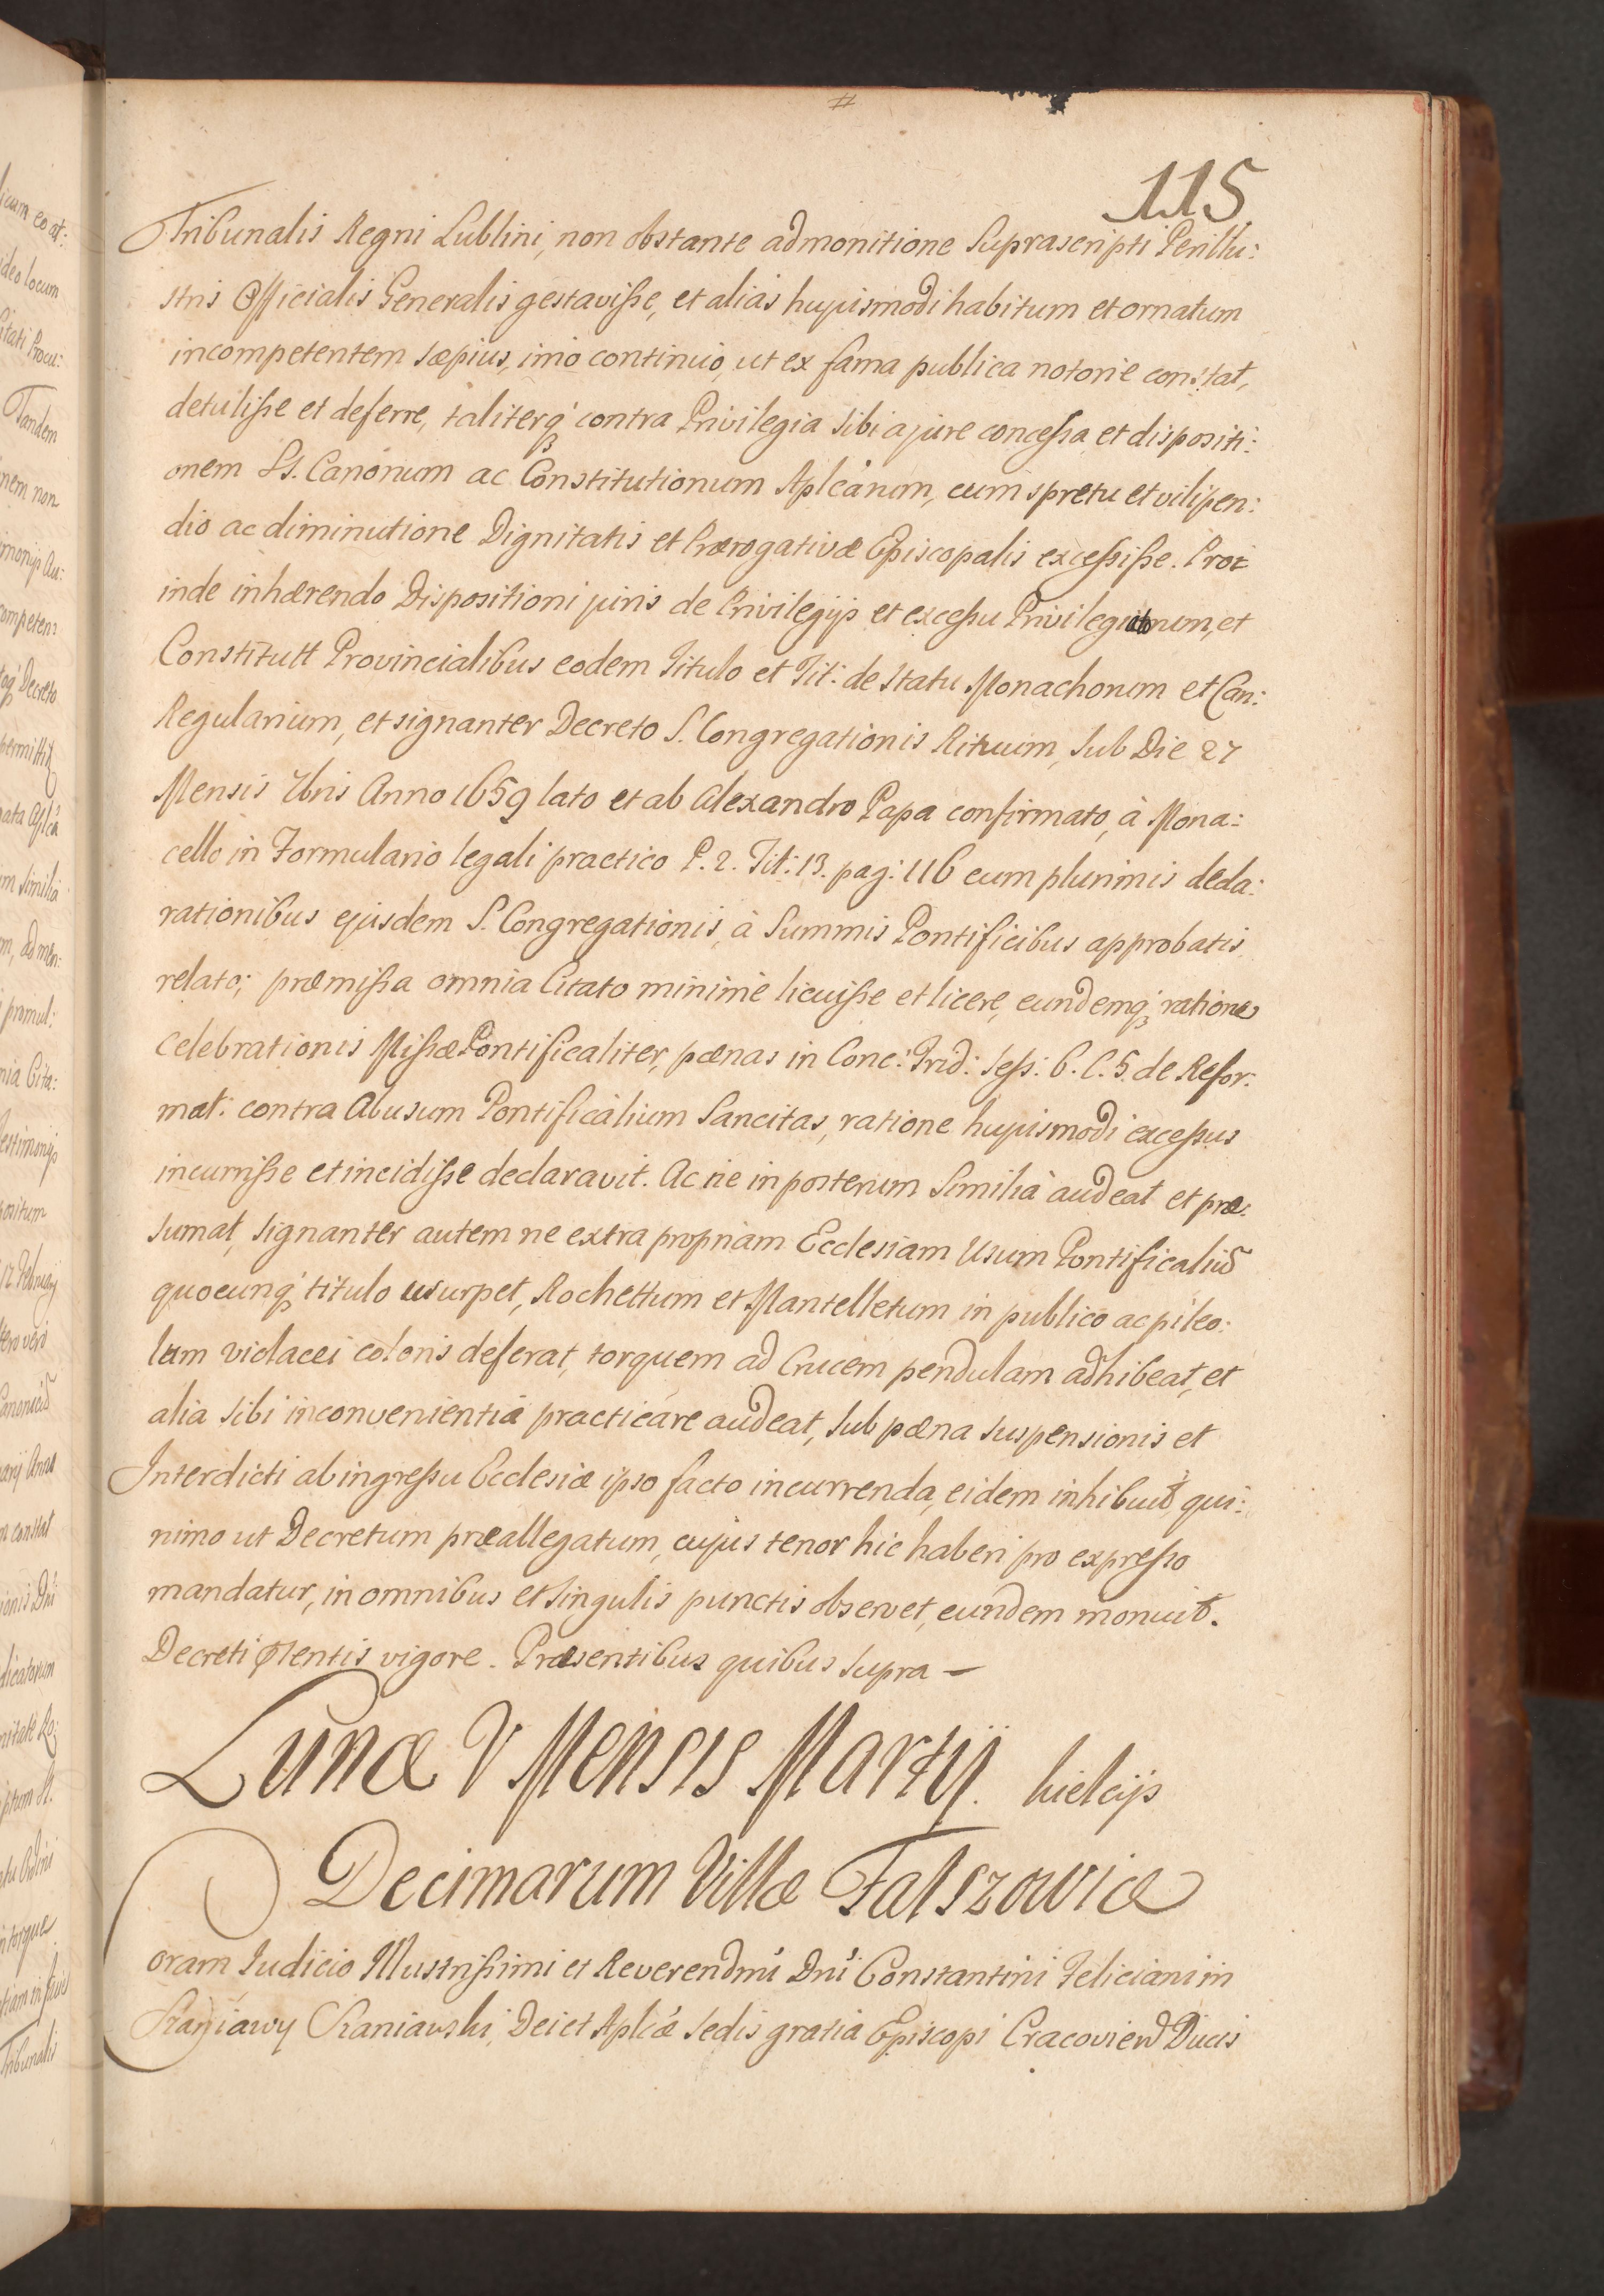 115
Tribunalis Regni Lublini, non obstante admonitione Suprascripti Perillu:
stris Officialis Generalis gestavisse, et alias hujusmodi habitum et ornatum
incompetentem sæpius, imo continuo, ut ex fama publica notorie constat,
detulisse et deferre, taliterq; contra Privilegia sibi a jure concessa et dispositi:
onem SS. Canonum ac Constitutionum Aplcarum, cum spretu et vilipen:
dio ac diminutione Dignitatis et Prærogativæ Episcopalis excessisse. Pro:
inde inhærendo Dispositioni juris de Privilegijs et excessu Privilegiatorum, et
Constitutt Provincialibus eodem Titulo et Tit: de statu Monachorum et Can:
Regularium, et signanter Decreto S. Congregationis Rituum, sub Die 27
Mensis 7bris Anno 1659 lato et ab Alexandro Papa confirmato, à Mona:
cello in Formulario legali practico P. 2. Tit: 13. pag: 116 cum plurimis decla:
rationibus ejusdem S. Congregationis, à Summis Pontificibus approbatis
relato; præmissa omnia Citato minime licuisse et licere, eundemq; ratione
celebrationis Missæ Pontificaliter, pœnas in Conc: Trid: sess: 6. C. 5. de Refor:
mat: contra Abusum Pontificalium Sancitas, ratione hujusmodi excessus
incurrisse et incidisse declaravit. Ac ne in posterum Similia audeat et præ:
sumat, signanter autem ne extra propriam Ecclesiam Usum Pontificaliū
quocunq; titulo usurpet, Rochettum et Mantelletum in publico ac pileo:
lum violacei coloris deferat, torquem ad Crucem pendulam adhibeat, et
alia sibi inconvenientia practicare audeat, sub pœna suspensionis et
Interdicti ab ingressu Ecclesiæ ipso facto incurrenda, eidem inhibuit qui:
nimo ut Decretum præallegatum, cujus tenor hic haberi pro expresso
mandatur, in omnibus et singulis punctis observet, eundem monuit.
Decreti pntis vigore. Præsentibus quibus supra —
Lunæ V Mensis Martij. Kielcijs
Decimarum Villæ Falszowice
Coram Judicio Illustrissimi et Reverendmi Dni Constantini Feliciani in
Szaniawy Szaniawski, Dei et Aplcæ Sedis gratia Episcopi Cracovien Ducis